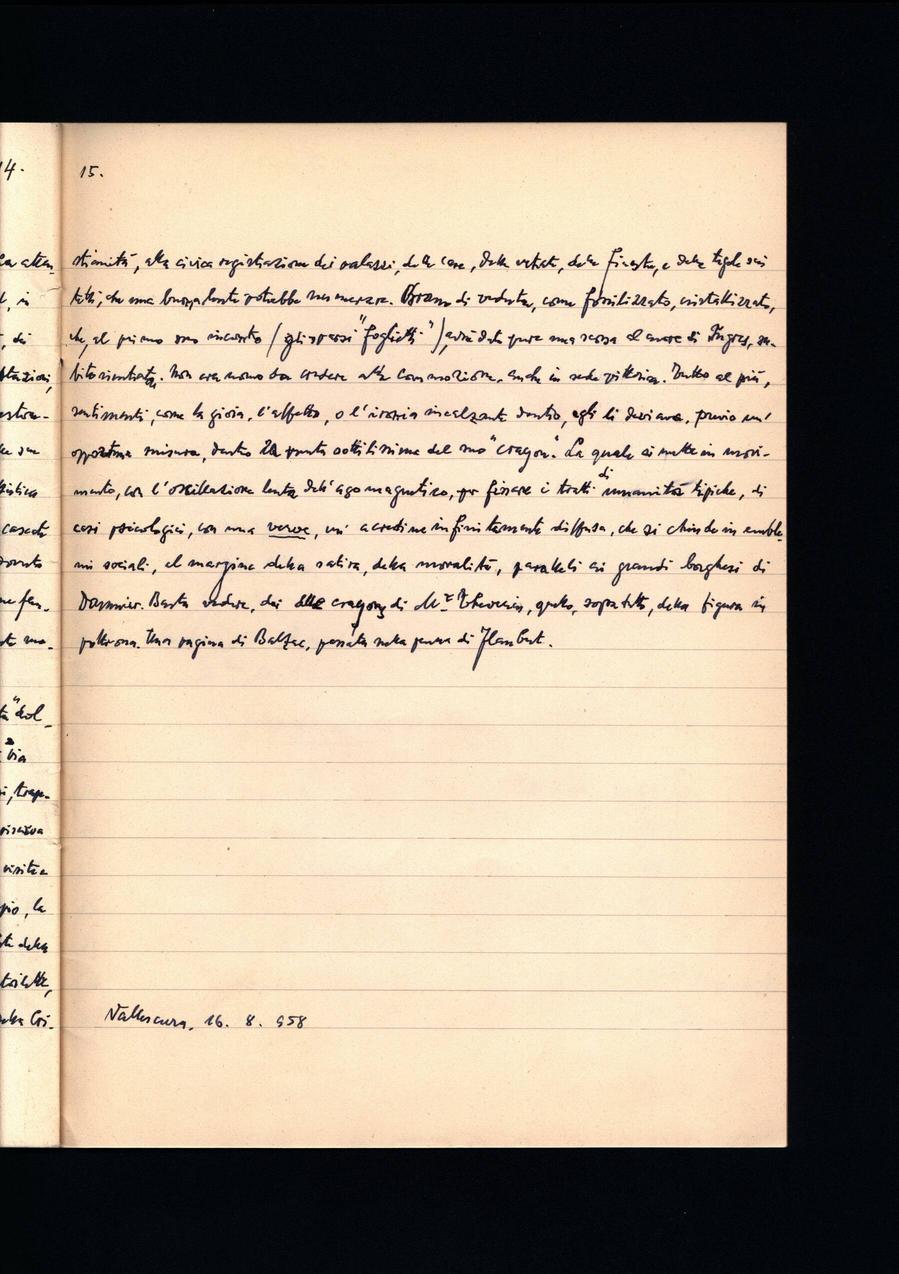 14.
15.
stianità, alla civica registrazione dei palazzi, delle case, delle vetrate, delle finestre, e delle tegole sui
tetti, che una buona lente potrebbe numerare. di veduta, come fossilizzato, cristallizzato,
che, al primo suo incontro (gli sparsi "foglietti") avrà dato pure una scossa al cuore di Ingres, su-
bito rientrata. Non era uomo da credere alla commozione, anche in sede pittorica. Tutto al più,
sentimenti, come la gioia, l'affetto, o l'ironia incalzante dentro, egli li deviava, previo un'
opportuna misura, dentro la punta sottilissima del suo "crayon". La quale si mette in movi-
mento, con l'oscillazione lenta dell'ago magnetico, per fissare i tratti di umanità tipiche, di
casi psicologici, con una verve, un'acredine infinitamente diffusa, che si chiude in emble-
mi sociali, al margine della satira, della moralità, paralleli ai grandi borghesi di
Daumier. Basta vedere, dei crayons di Mr Thevenin, quello, sopratutto, della figura in
poltrona. Una pagina di Balzac, passata nella penna di Flaubert.
Vallescura, 16. 8. 958